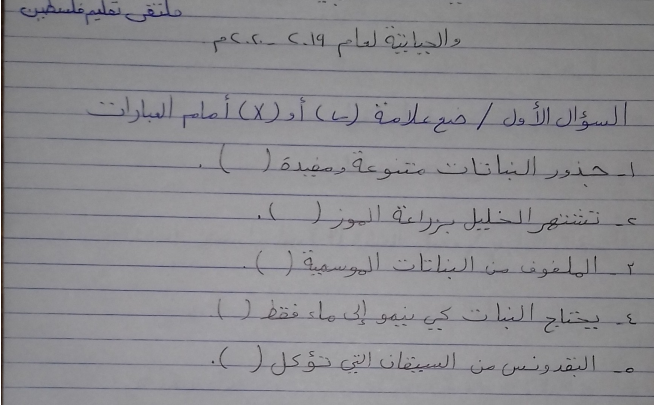 ملتقى تعليم فلسطين
والحياتية لعام ٢٠١٩ - ٢٠٢٠م
السؤال الأول / ضع علامة (✓) أو (X) أمام العبارات
١- جذور النباتات متنوعة ومفيدة ( ).
٢- تشتهر الخليل بزراعة الموز ( ).
٣- الملفوف من النباتات الموسمية ( ).
٤- يحتاج النبات كي ينمو إلى ماء فقط ( ).
٥- البقدونس من السيقان التي تؤكل ( ).